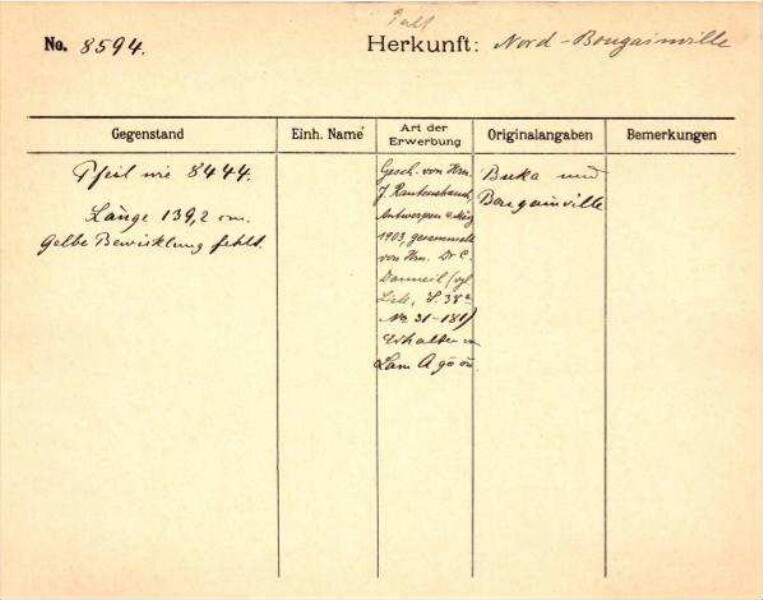 No. 8594.
Herkunft: Nord-Bougainville
Gegenstand
Einh. Name
Art der
Erwerbung
Originalangaben
Bemerkungen
Pfeil wie 8444.
Länge 139,2 cm.
Gelbe Bewicklung fehlt.
Gesch. von Hrn.
J. Rautenstrauch,
Antwerpen
1903, gesammelt
von Hrn. Dr C.
Danneil (vgl
Liste, S. 38
No 31-181)
Erhalten
Buka und
Bougainville